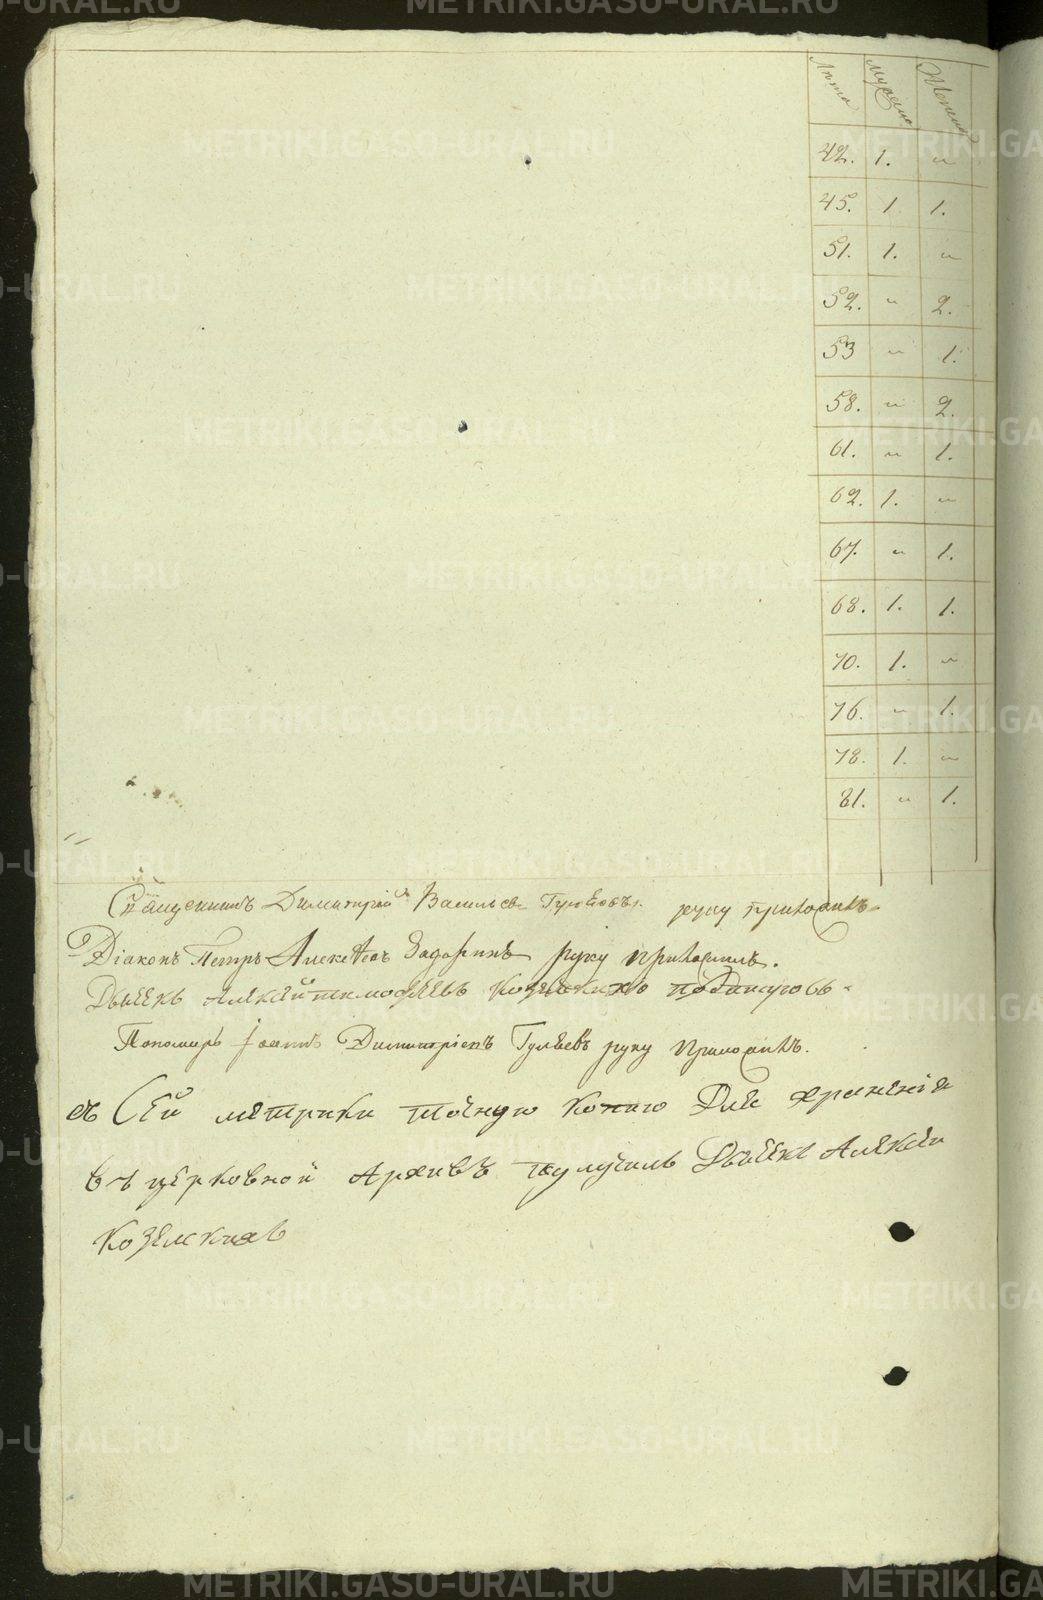 Лѣта Мужска Женска
42. 1. "
45. 1. 1.
51. 1. "
52. " 2.
53 " 1.
58. " 2.
61. " 1.
62. 1. "
67. " 1.
68. 1. 1.
70. 1. "
76. " 1.
78. 1. "
81. " 1.
Священникъ Димитрій Васильевъ руку приложилъ
Діаконъ Петръ Алексѣевъ руку приложилъ.
Дьячекъ Алексѣй Тимофеевъ подписуюсь
Пономарь Іоаннъ Димитріевъ Гуляевъ руку приложилъ.
съ Сей метрики точную копию для хранения
въ церковной Архивъ получилъ Дьячекъ Алексѣй
METRIKI.GASO-URAL.RU